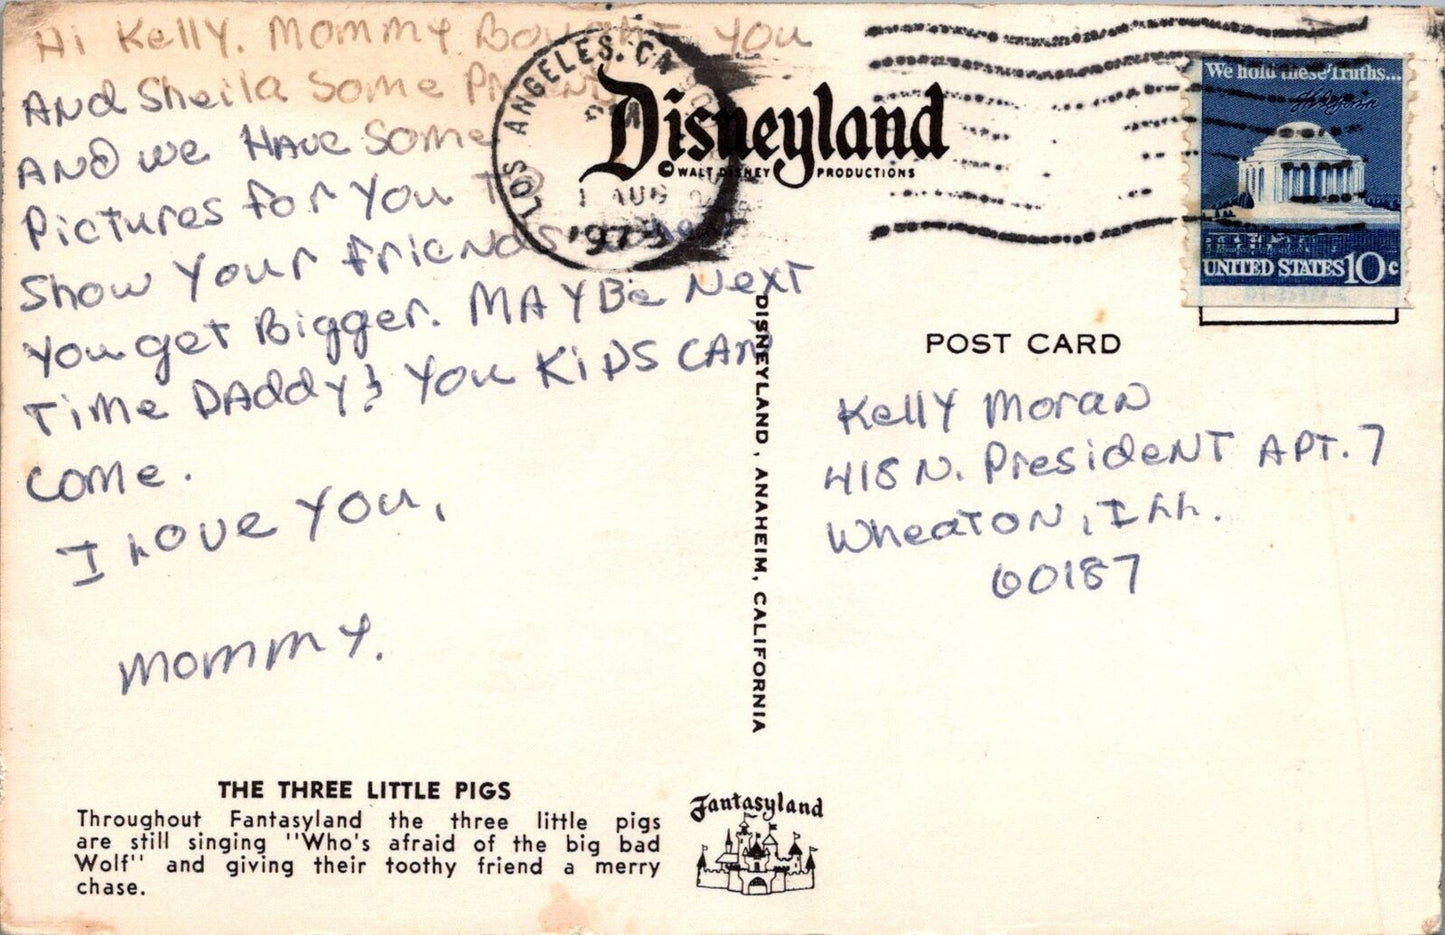 Hi Kelly. Mommy Bought You
And Sheila Some Presents
And we Have Some
Pictures for You To
Show Your friends when
You get Bigger. MAYBe Next
Time DAddy & You KiDS CAN
come.
I Love You,
Mommy.
THE THREE LITTLE PIGS
Throughout Fantasyland the three little pigs
are still singing "Who's afraid of the big bad
Wolf" and giving their toothy friend a merry
chase.
Fantasyland
DISNEYLAND, ANAHEIM, CALIFORNIA
LOS ANGELES, CA
AUG
1975
Disneyland
© WALT DISNEY PRODUCTIONS
We hold these Truths...
UNITED STATES 10c
POST CARD
Kelly Moran
418 N. President APT. 7
Wheaton, Ill.
60187